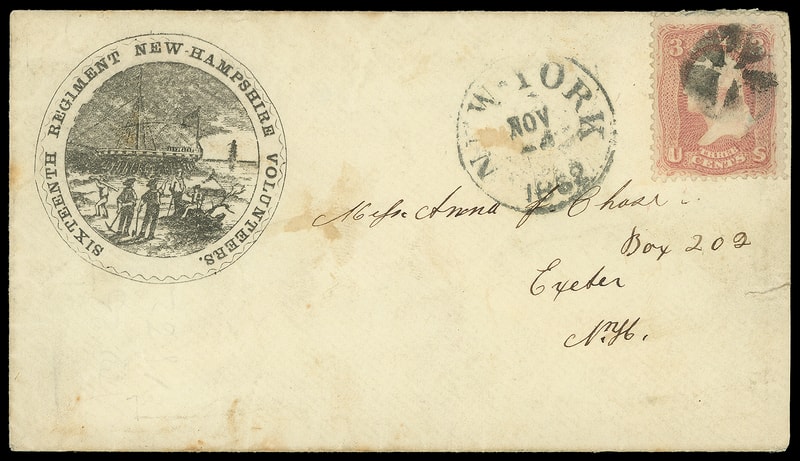 SIXTEENTH REGIMENT NEW-HAMPSHIRE VOLUNTEERS.
NEW-YORK
NOV
24
1862
3 3
U THREE S
CENTS
Miss Anna J Chase
Box 202
Exeter
N.H.